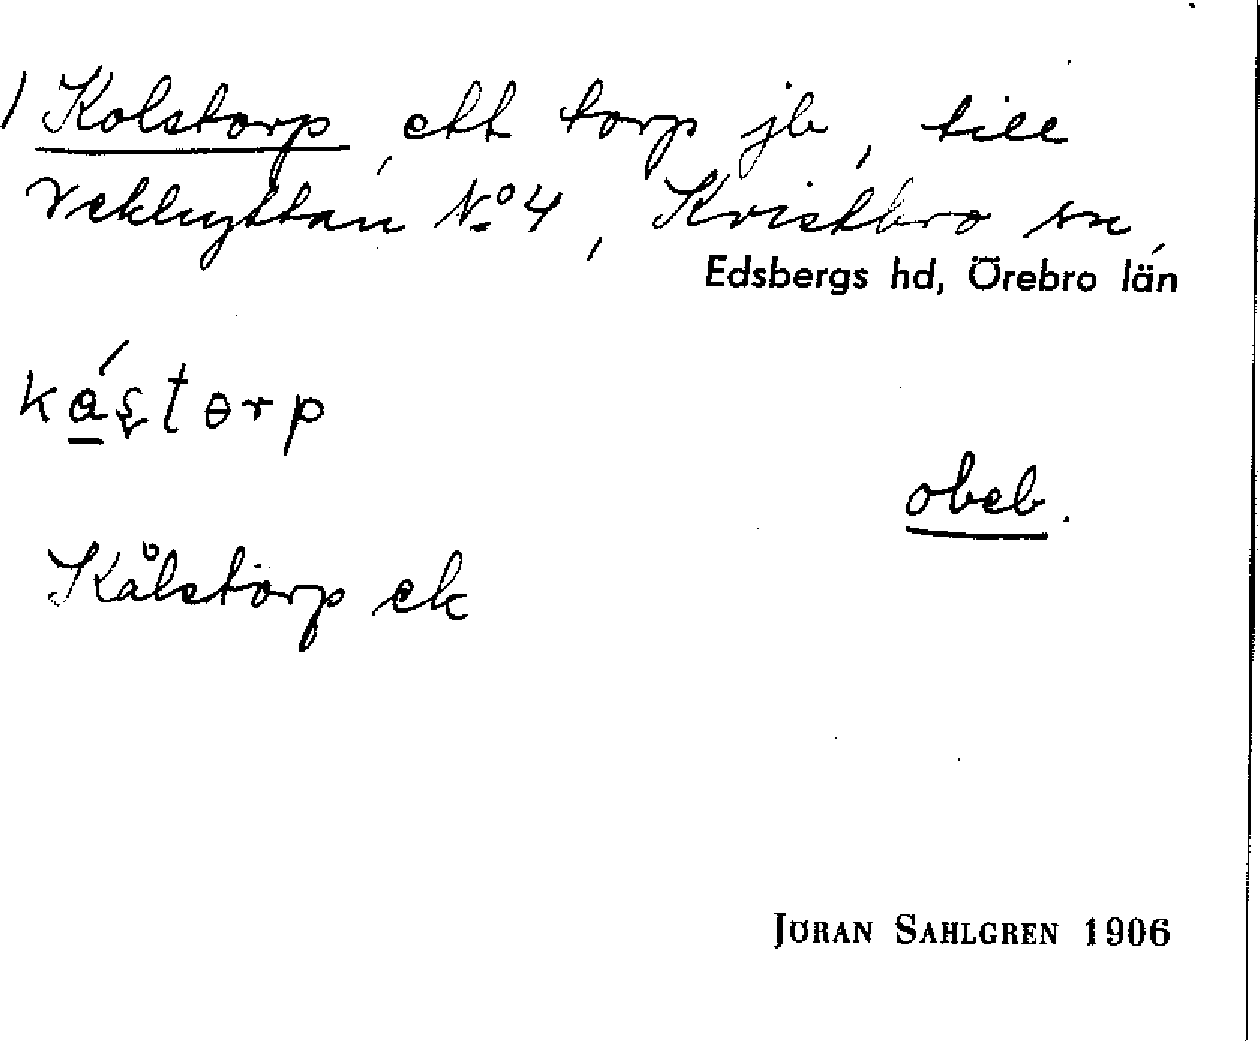 1 Kolstorp, ett torp jb, till
Vekhyttan No 4, Kvistbro sn,
Edsbergs hd, Örebro län
obeb.
Kålstorp ek
JÖRAN SAHLGREN 1906